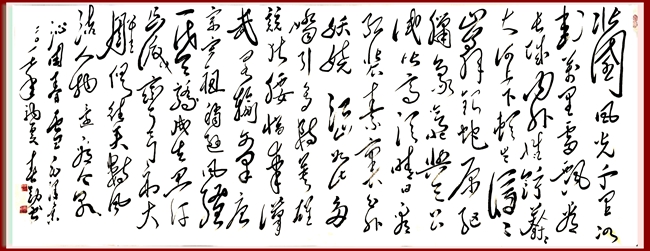 北國风光千里冰
封万里雪飘望
长城内外惟馀莽莽
大河上下顿失滔滔
山舞银蛇原驰
腊象欲与天公
试比高须晴日看
红装素裹分外
妖娆江山如此多
娇引无数英雄
竞折腰惜秦皇汉
武略输文采唐
宗宋祖稍逊风骚
一代天骄成吉思汗
只识弯弓射大
雕俱往矣数风
流人物还看今朝
沁园春雪毛泽东
年初夏